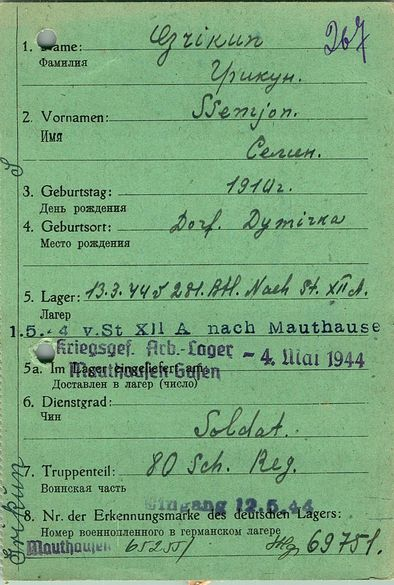 1. Name: 267
Фамилия
Урикун.
2. Vornamen: Ssemjon.
Имя
Семин.
3. Geburtstag: 1914г.
День рождения
4. Geburtsort: Dorf. Dymirka
Место рождения
5. Lager: 13.3.44 v 281. Btl. Nach St. XII A.
Лагер
1.5.44 v.St XII A nach Mauthause
Kriegsgef. Arb.-Lager - 4. Mai 1944
5a. Im Lager eingeliefert am:
Mauthausen-Gusen
Доставлен в лагер (число)
6. Dienstgrad:
Чин
Soldat.
7. Truppenteil: 80 Sch. Reg.
Воинская часть
Eingang 12.5.44
8. Nr. der Erkennungsmarke des deutschen Lagers:
Номер военнопленного в германском лагере
Mauthausen 69751.